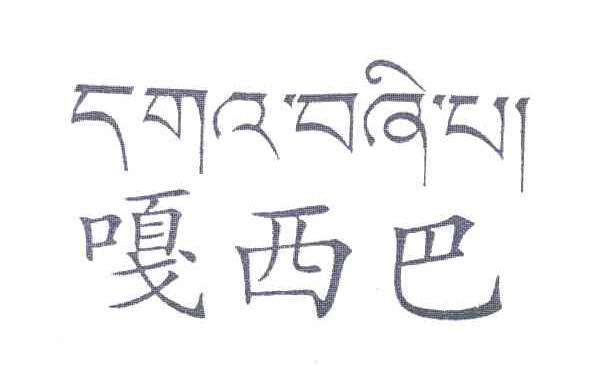 དགའ་བཞི་པ།
嘎西巴